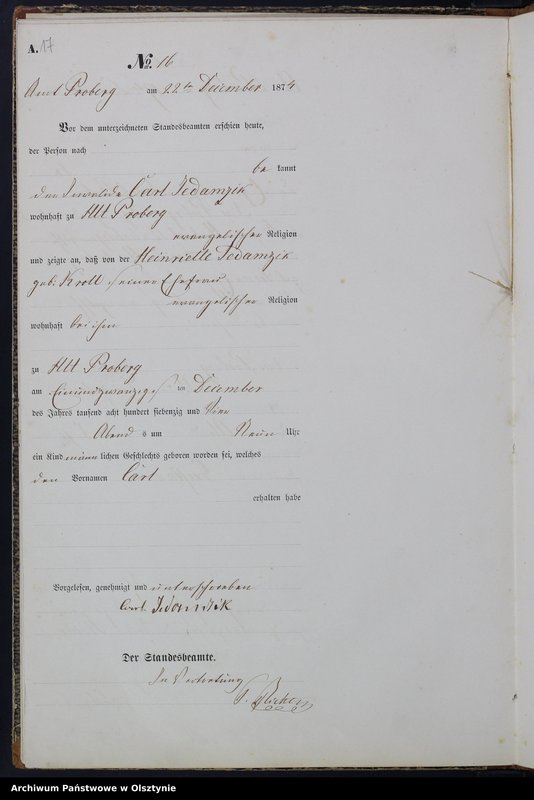 A. 17
No. 16
Amt Proberg am 22ten December 1874
Vor dem unterzeichneten Standesbeamten erschien heute,
der Person nach
be kannt
der Invalide Carl Jedamzik
wohnhaft zu Alt Proberg
evangelischer Religion
und zeigte an, daß von der Heinriette Jedamzik
geb: Kroll seiner Ehefrau
evangelischer Religion
wohnhaft bei ihm
zu Alt Proberg
am Einundzwanzigsten December
des Jahres tausend acht hundert siebenzig und Vier
Abend s um Neun Uhr
ein Kind männ lichen Geschlechts geboren worden sei, welches
den Vornamen Carl
erhalten habe
Vorgelesen, genehmigt und unterschrieben
Carl Jedamzik
Der Standesbeamte.
In Vertretung
Archiwum Państwowe w Olsztynie